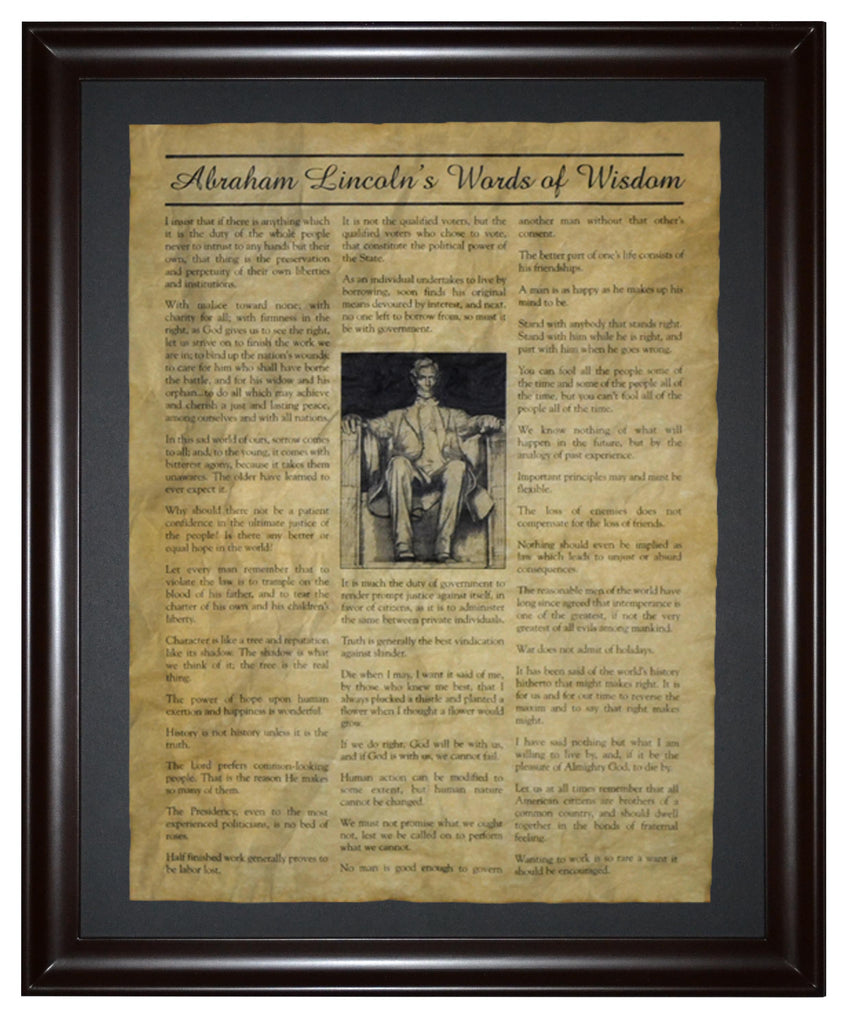 Abraham Lincoln's Words of Wisdom
I insist that if there is anything which
it is the duty of the whole people
never to intrust to any hands but their
own, that thing is the preservation
and perpetuity of their own liberties
and institutions.
With malace toward none; with
charity for all; with firmness in the
right, as God gives us to see the right,
let us strive on to finish the work we
are in; to bind up the nation's wounds;
to care for him who shall have borne
the battle, and for his widow and his
orphan...to do all which may achieve
and cherish a just and lasting peace,
among ourselves and with all nations.
In this sad world of ours, sorrow comes
to all; and, to the young, it comes with
bitterest agony, because it takes them
unawares. The older have learned to
ever expect it.
Why should there not be a patient
confidence in the ultimate justice of
the people? Is there any better or
equal hope in the world?
Let every man remember that to
violate the law is to trample on the
blood of his father, and to tear the
charter of his own and his children's
liberty.
Character is like a tree and reputation
like its shadow. The shadow is what
we think of it; the tree is the real
thing.
The power of hope upon human
exertion and happiness is wonderful.
History is not history unless it is the
truth.
The Lord prefers common-looking
people. That is the reason He makes
so many of them.
The Presidency, even to the most
experienced politicians, is no bed of
roses.
Half finished work generally proves to
be labor lost.
It is not the qualified voters, but the
qualified voters who chose to vote,
that constitute the political power of
the State.
As an individual undertakes to live by
borrowing, soon finds his original
means devoured by interest, and next,
no one left to borrow from, so must it
be with government.
It is much the duty of government to
render prompt justice against itself, in
favor of citizens, as it is to administer
the same between private individuals.
Truth is generally the best vindication
against slander.
Die when I may, I want it said of me,
by those who knew me best, that I
always plucked a thistle and planted a
flower when I thought a flower would
grow.
If we do right, God will be with us,
and if God is with us, we cannot fail.
Human action can be modified to
some extent, but human nature
cannot be changed.
We must not promise what we ought
not, lest we be called on to perform
what we cannot.
No man is good enough to govern
another man without that other's
consent.
The better part of one's life consists of
his friendships.
A man is as happy as he makes up his
mind to be.
Stand with anybody that stands right.
Stand with him while he is right, and
part with him when he goes wrong.
You can fool all the people some of
the time and some of the people all of
the time, but you can't fool all of the
people all of the time.
We know nothing of what will
happen in the future, but by the
analogy of past experience.
Important principles may and must be
flexible.
The loss of enemies does not
compensate for the loss of friends.
Nothing should even be implied as
law which leads to unjust or absurd
consequences.
The reasonable men of the world have
long since agreed that intemperance is
one of the greatest, if not the very
greatest of all evils among mankind.
War does not admit of holidays.
It has been said of the world's history
hitherto that might makes right. It is
for us and for our time to reverse the
maxim and to say that right makes
might.
I have said nothing but what I am
willing to live by, and, if it be the
pleasure of Almighty God, to die by.
Let us at all times remember that all
American citizens are brothers of a
common country, and should dwell
together in the bonds of fraternal
feeling.
Wanting to work is so rare a want it
should be encouraged.